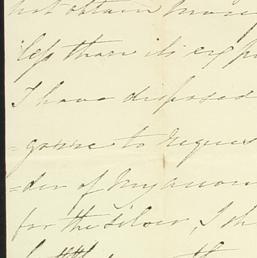 not obtain more
less than its exp
I have disposed
=gorne to reques
=der of my accou
for the silver, I sh